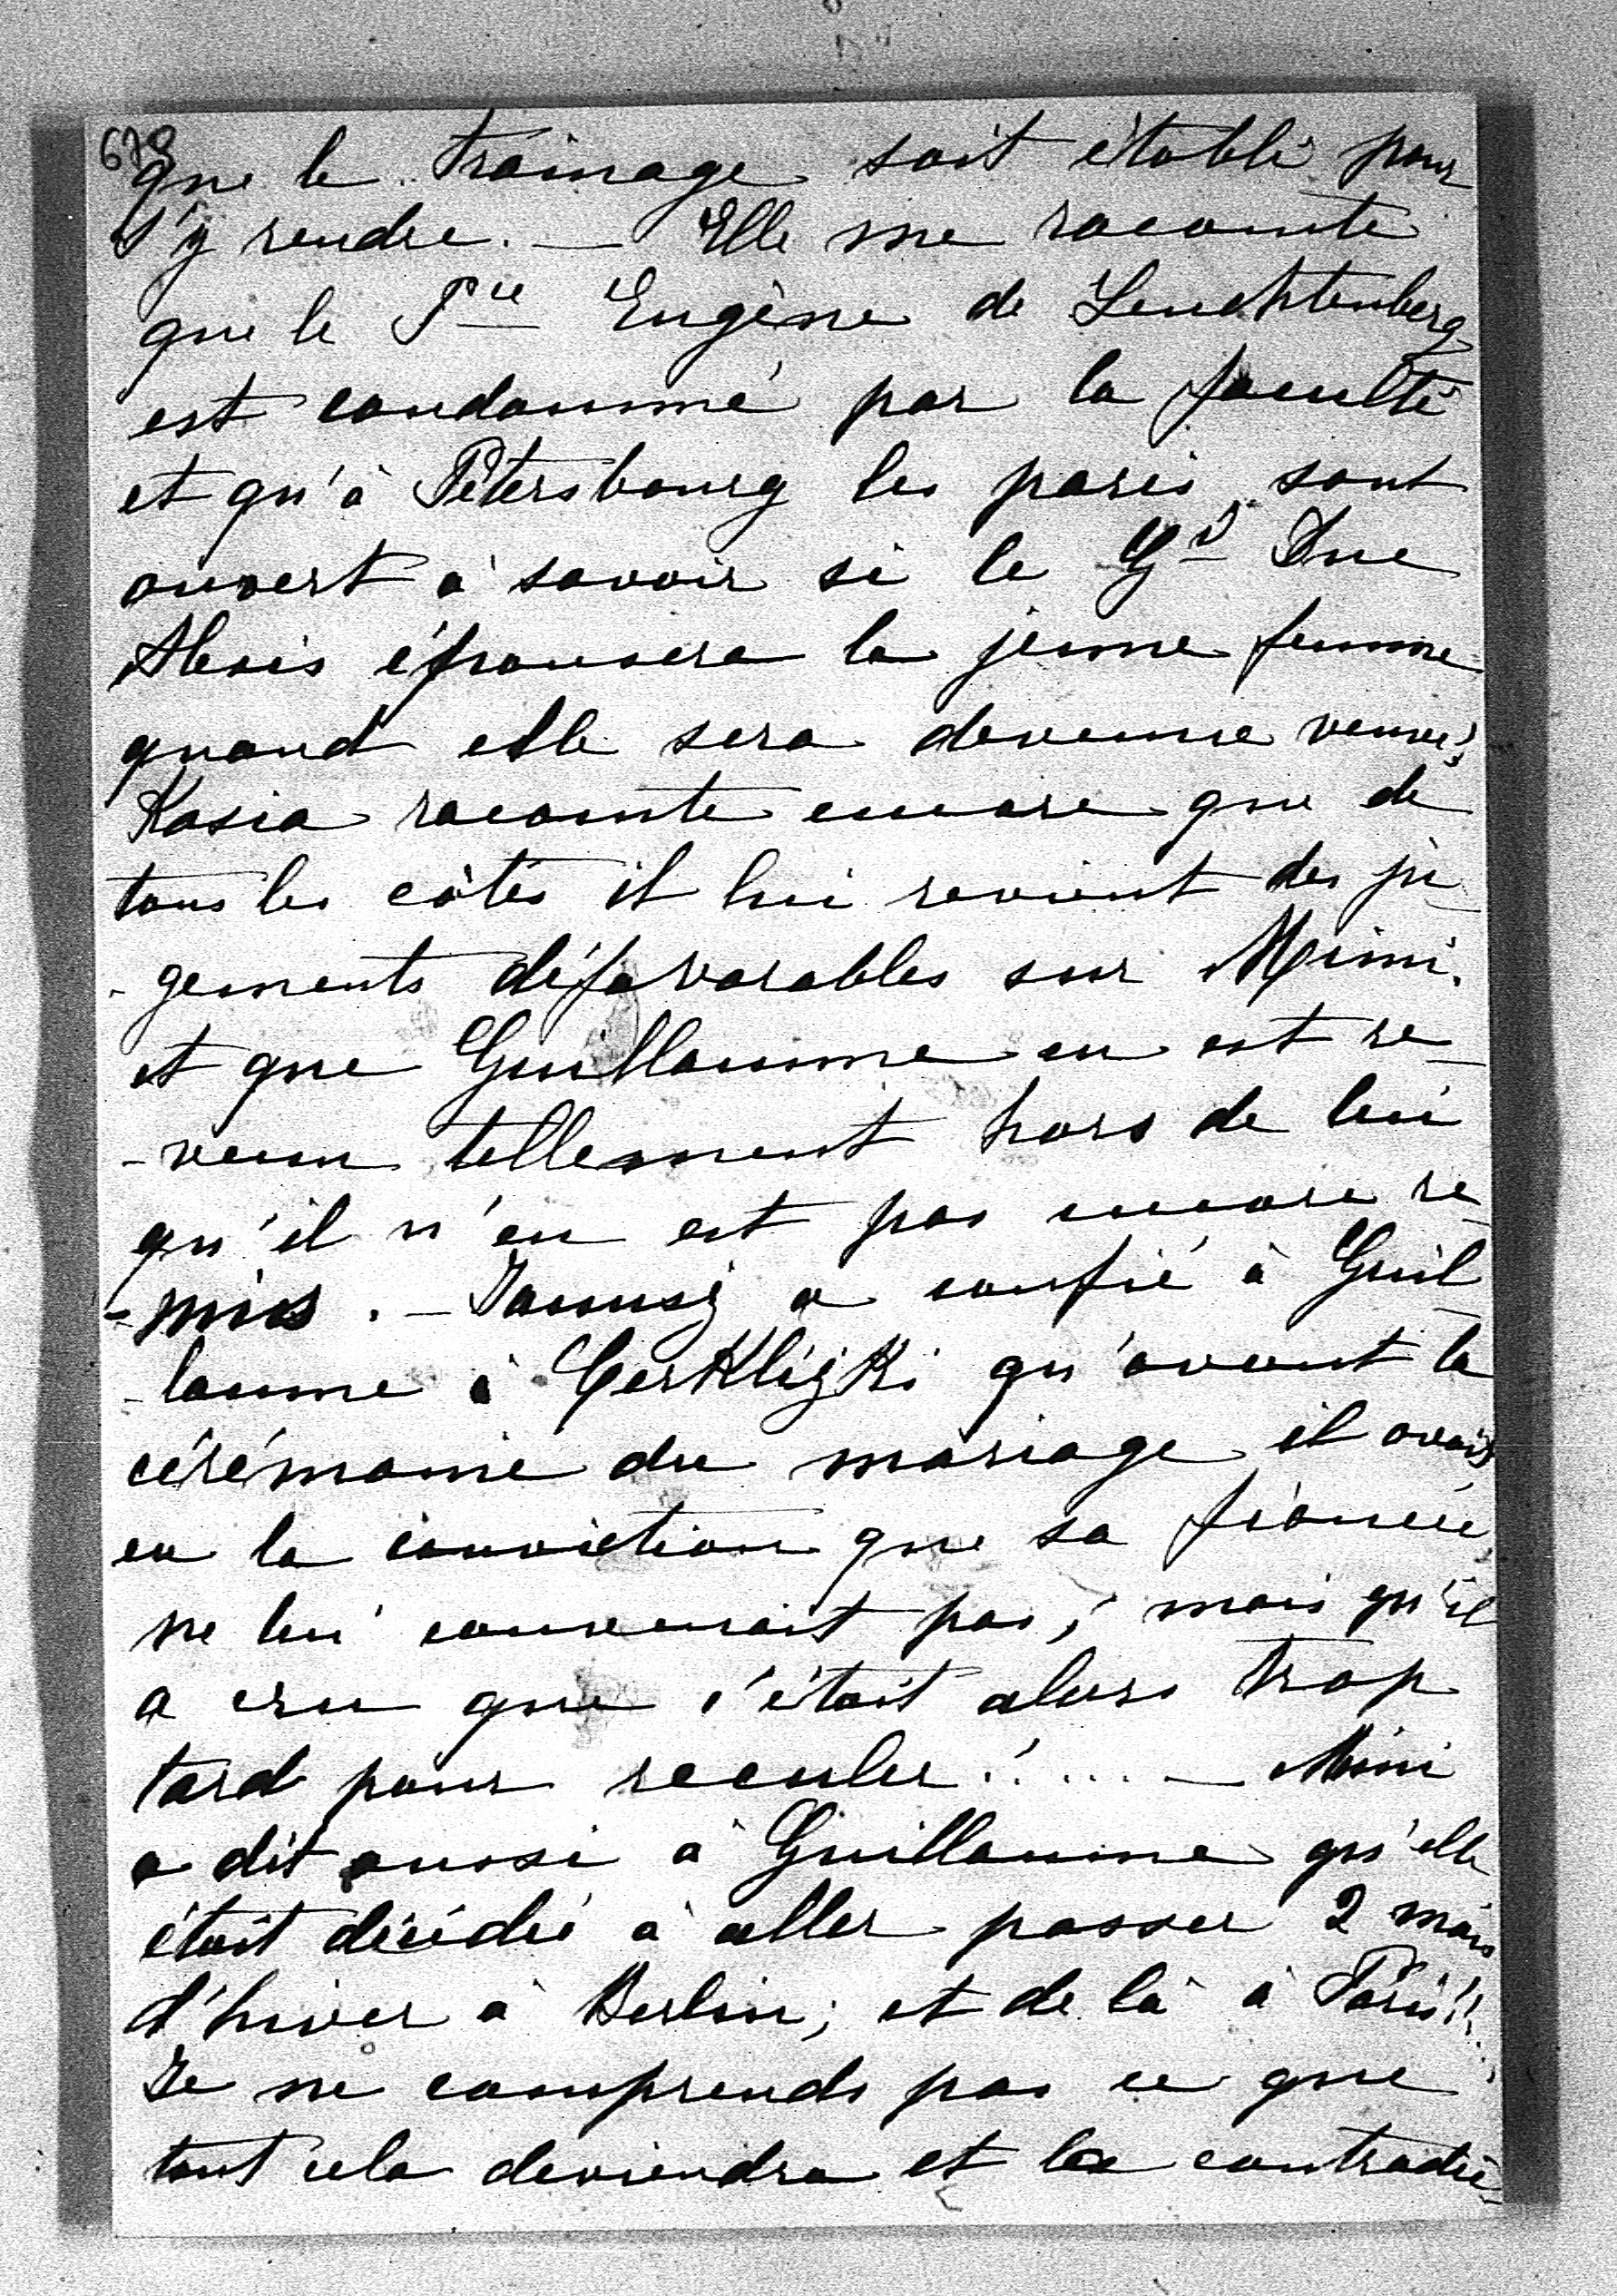 678
que le trainage soit établi pour
s'y rendre. — Elle me raconte
que le Pce Eugène de Leuchtenberg
est condamné par la faculté
et qu'à Pétersbourg les paris sont
ouvert à savoir si le Gd Duc
Alexis épousera la jeune femme
quand elle sera devenue veuve!
Kasia raconte encore que de
tous les côtés il lui revient des ju-
-gements défavorables sur Mimi.
et que Guillaume en est re-
-venu tellement hors de lui
qu'il n'en est pas encore re-
-mis. — a confié à Guil-
-laume à qu'avant la
cérémonie du mariage il avait
eu la conviction que sa fiancée
ne lui convenait pas; mais qu'il
a cru que c'était alors trop
tard pour reculer!.... — Mimi
a dit aussi à Guillaume qu'elle
était décidée à aller passer 2 mois
d'hiver à Berlin; et de là à Paris!!...
Je ne comprends pas ce que
tout cela deviendra et la contradic-